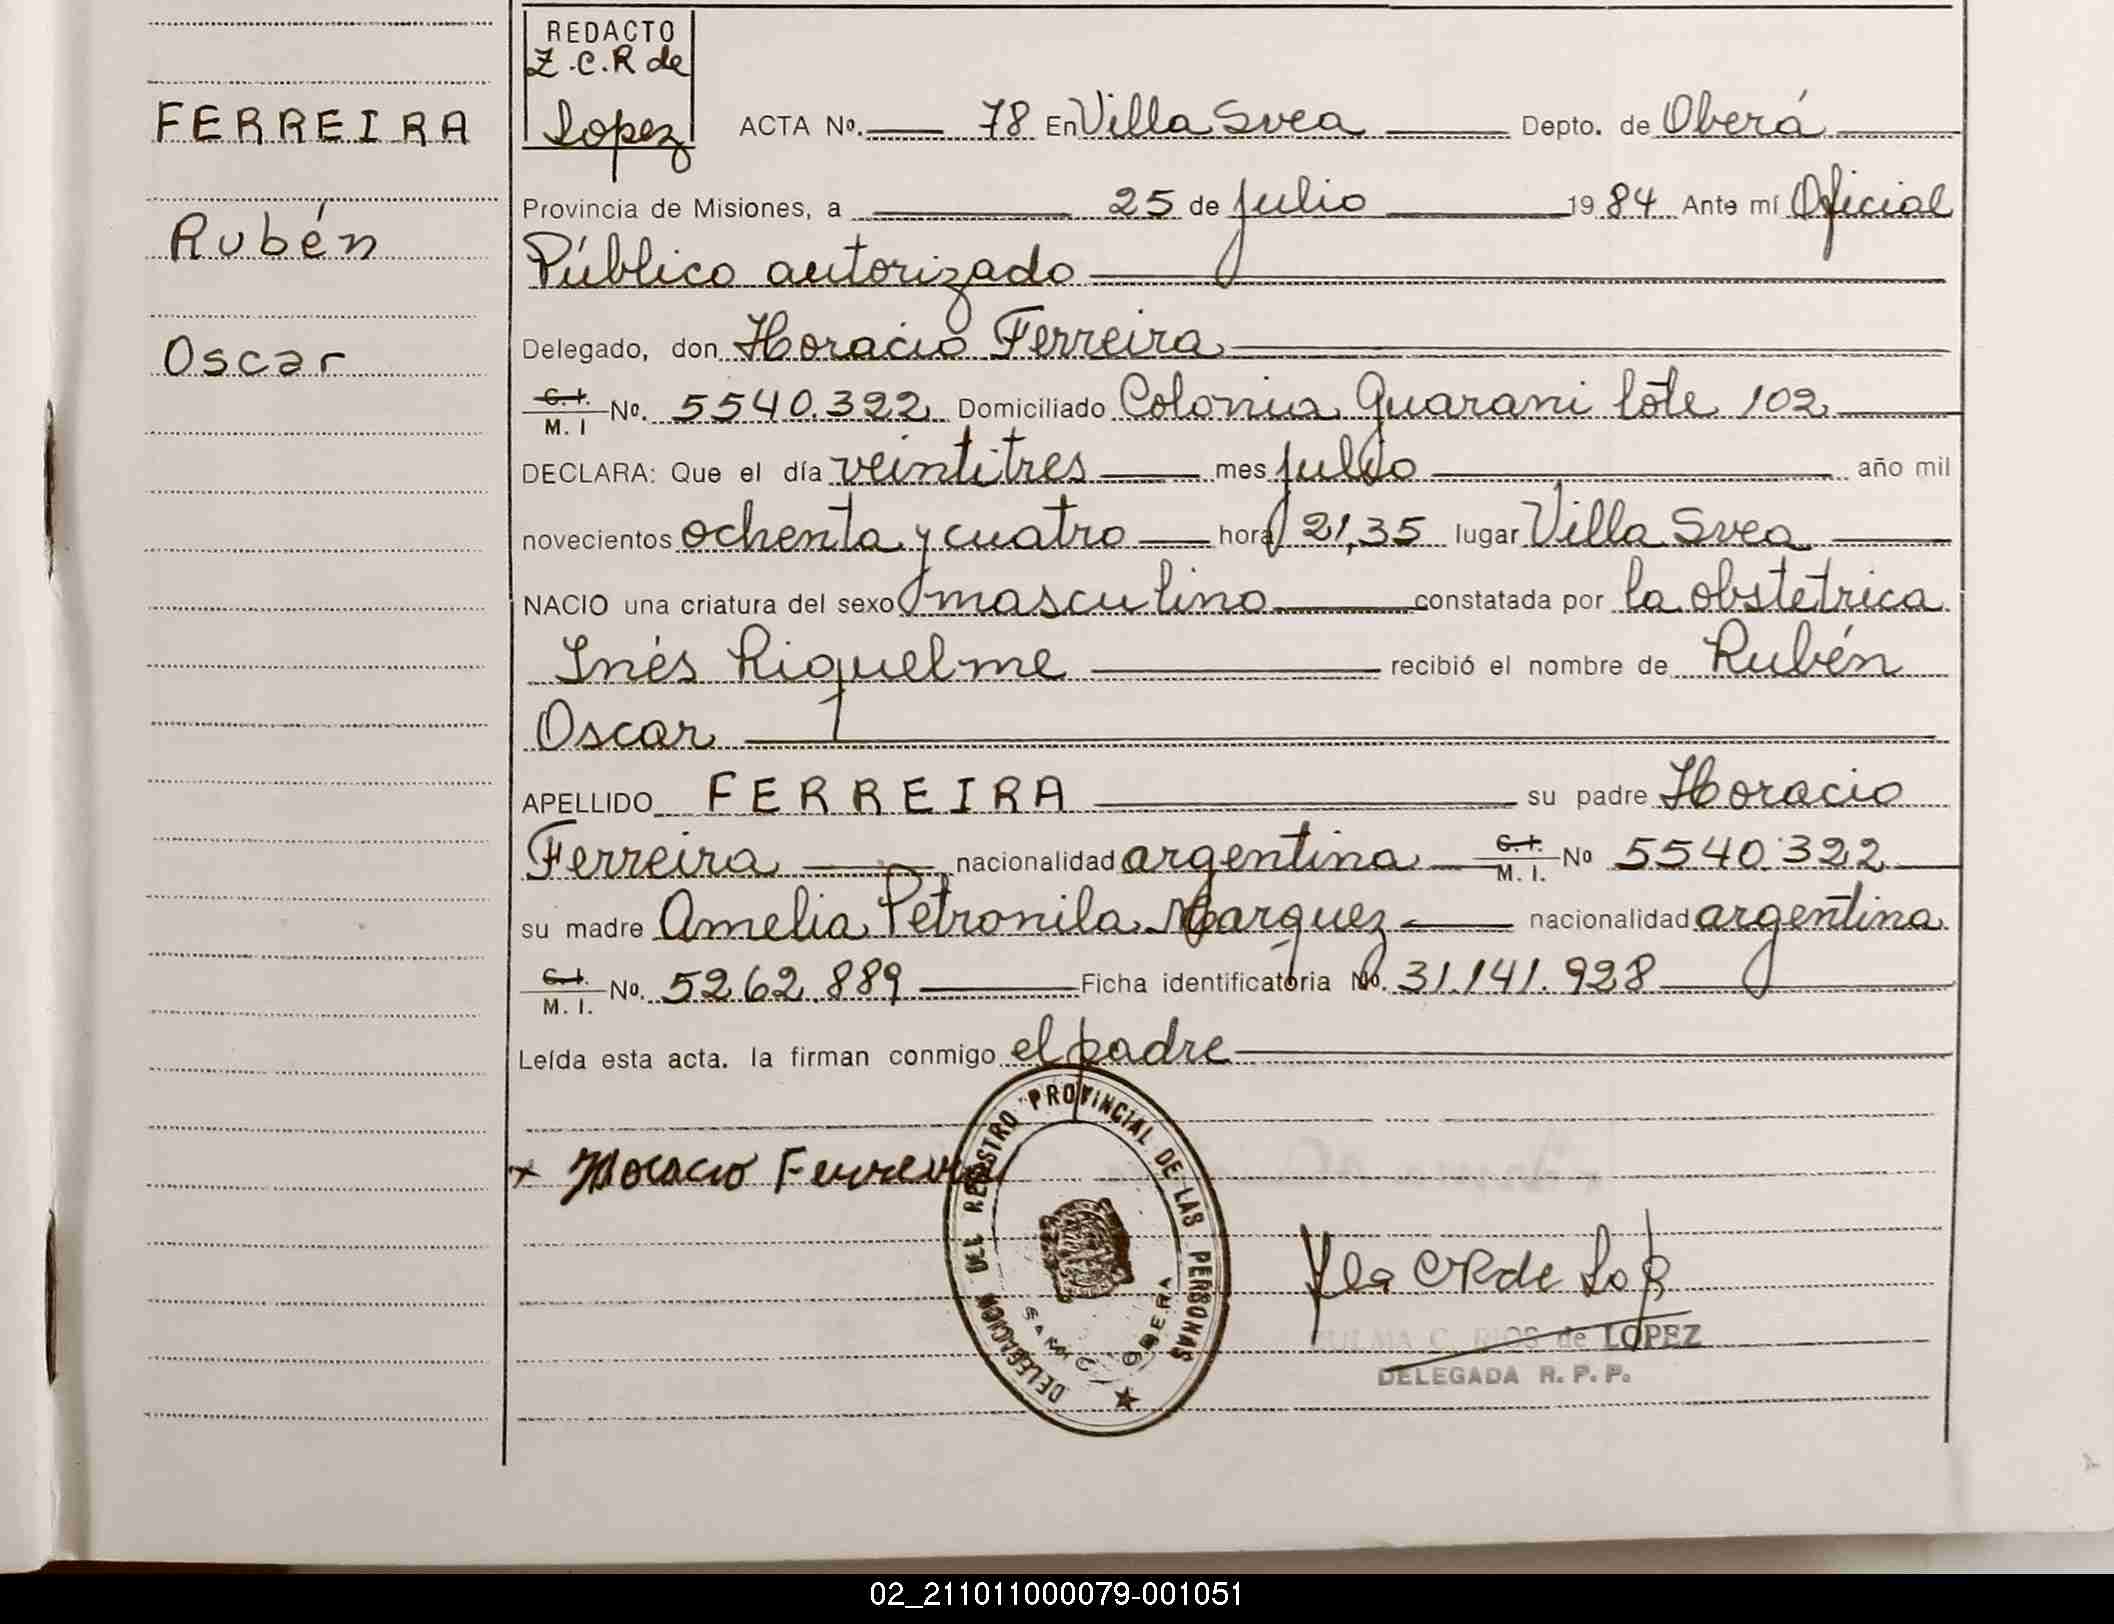 FERREIRA
Rubén
Oscar
REDACTO
Z.C.R de
Lopez
ACTA No. 78 En Villa Svea Depto. de Oberá
Provincia de Misiones, a 25 de julio 1984 Ante mí Oficial
Público autorizado
Delegado, don Horacio Ferreira
C.I. M. I No. 5540.322 Domiciliado Colonia Guarani lote 102
DECLARA: Que el día veintitres mes julio año mil
novecientos ochenta y cuatro hora 21,35 lugar Villa Svea
NACIO una criatura del sexo masculino constatada por la obstetrica
Inés Riquelme recibió el nombre de Rubén
Oscar
APELLIDO FERREIRA su padre Horacio
Ferreira nacionalidad argentina C.I. M. I. No 5540.322
su madre Amelia Petronila Marquez nacionalidad argentina
C.I. M. I. No. 5262.889 Ficha identificatoria No. 31.141.928
Leída esta acta. la firman conmigo el padre
x Horacio Ferreira
DELEGACION DEL REGISTRO PROVINCIAL DE LAS PERSONAS
OBERA
ZULMA C. RIOS de LOPEZ
DELEGADA R. P. P.
02_211011000079-001051